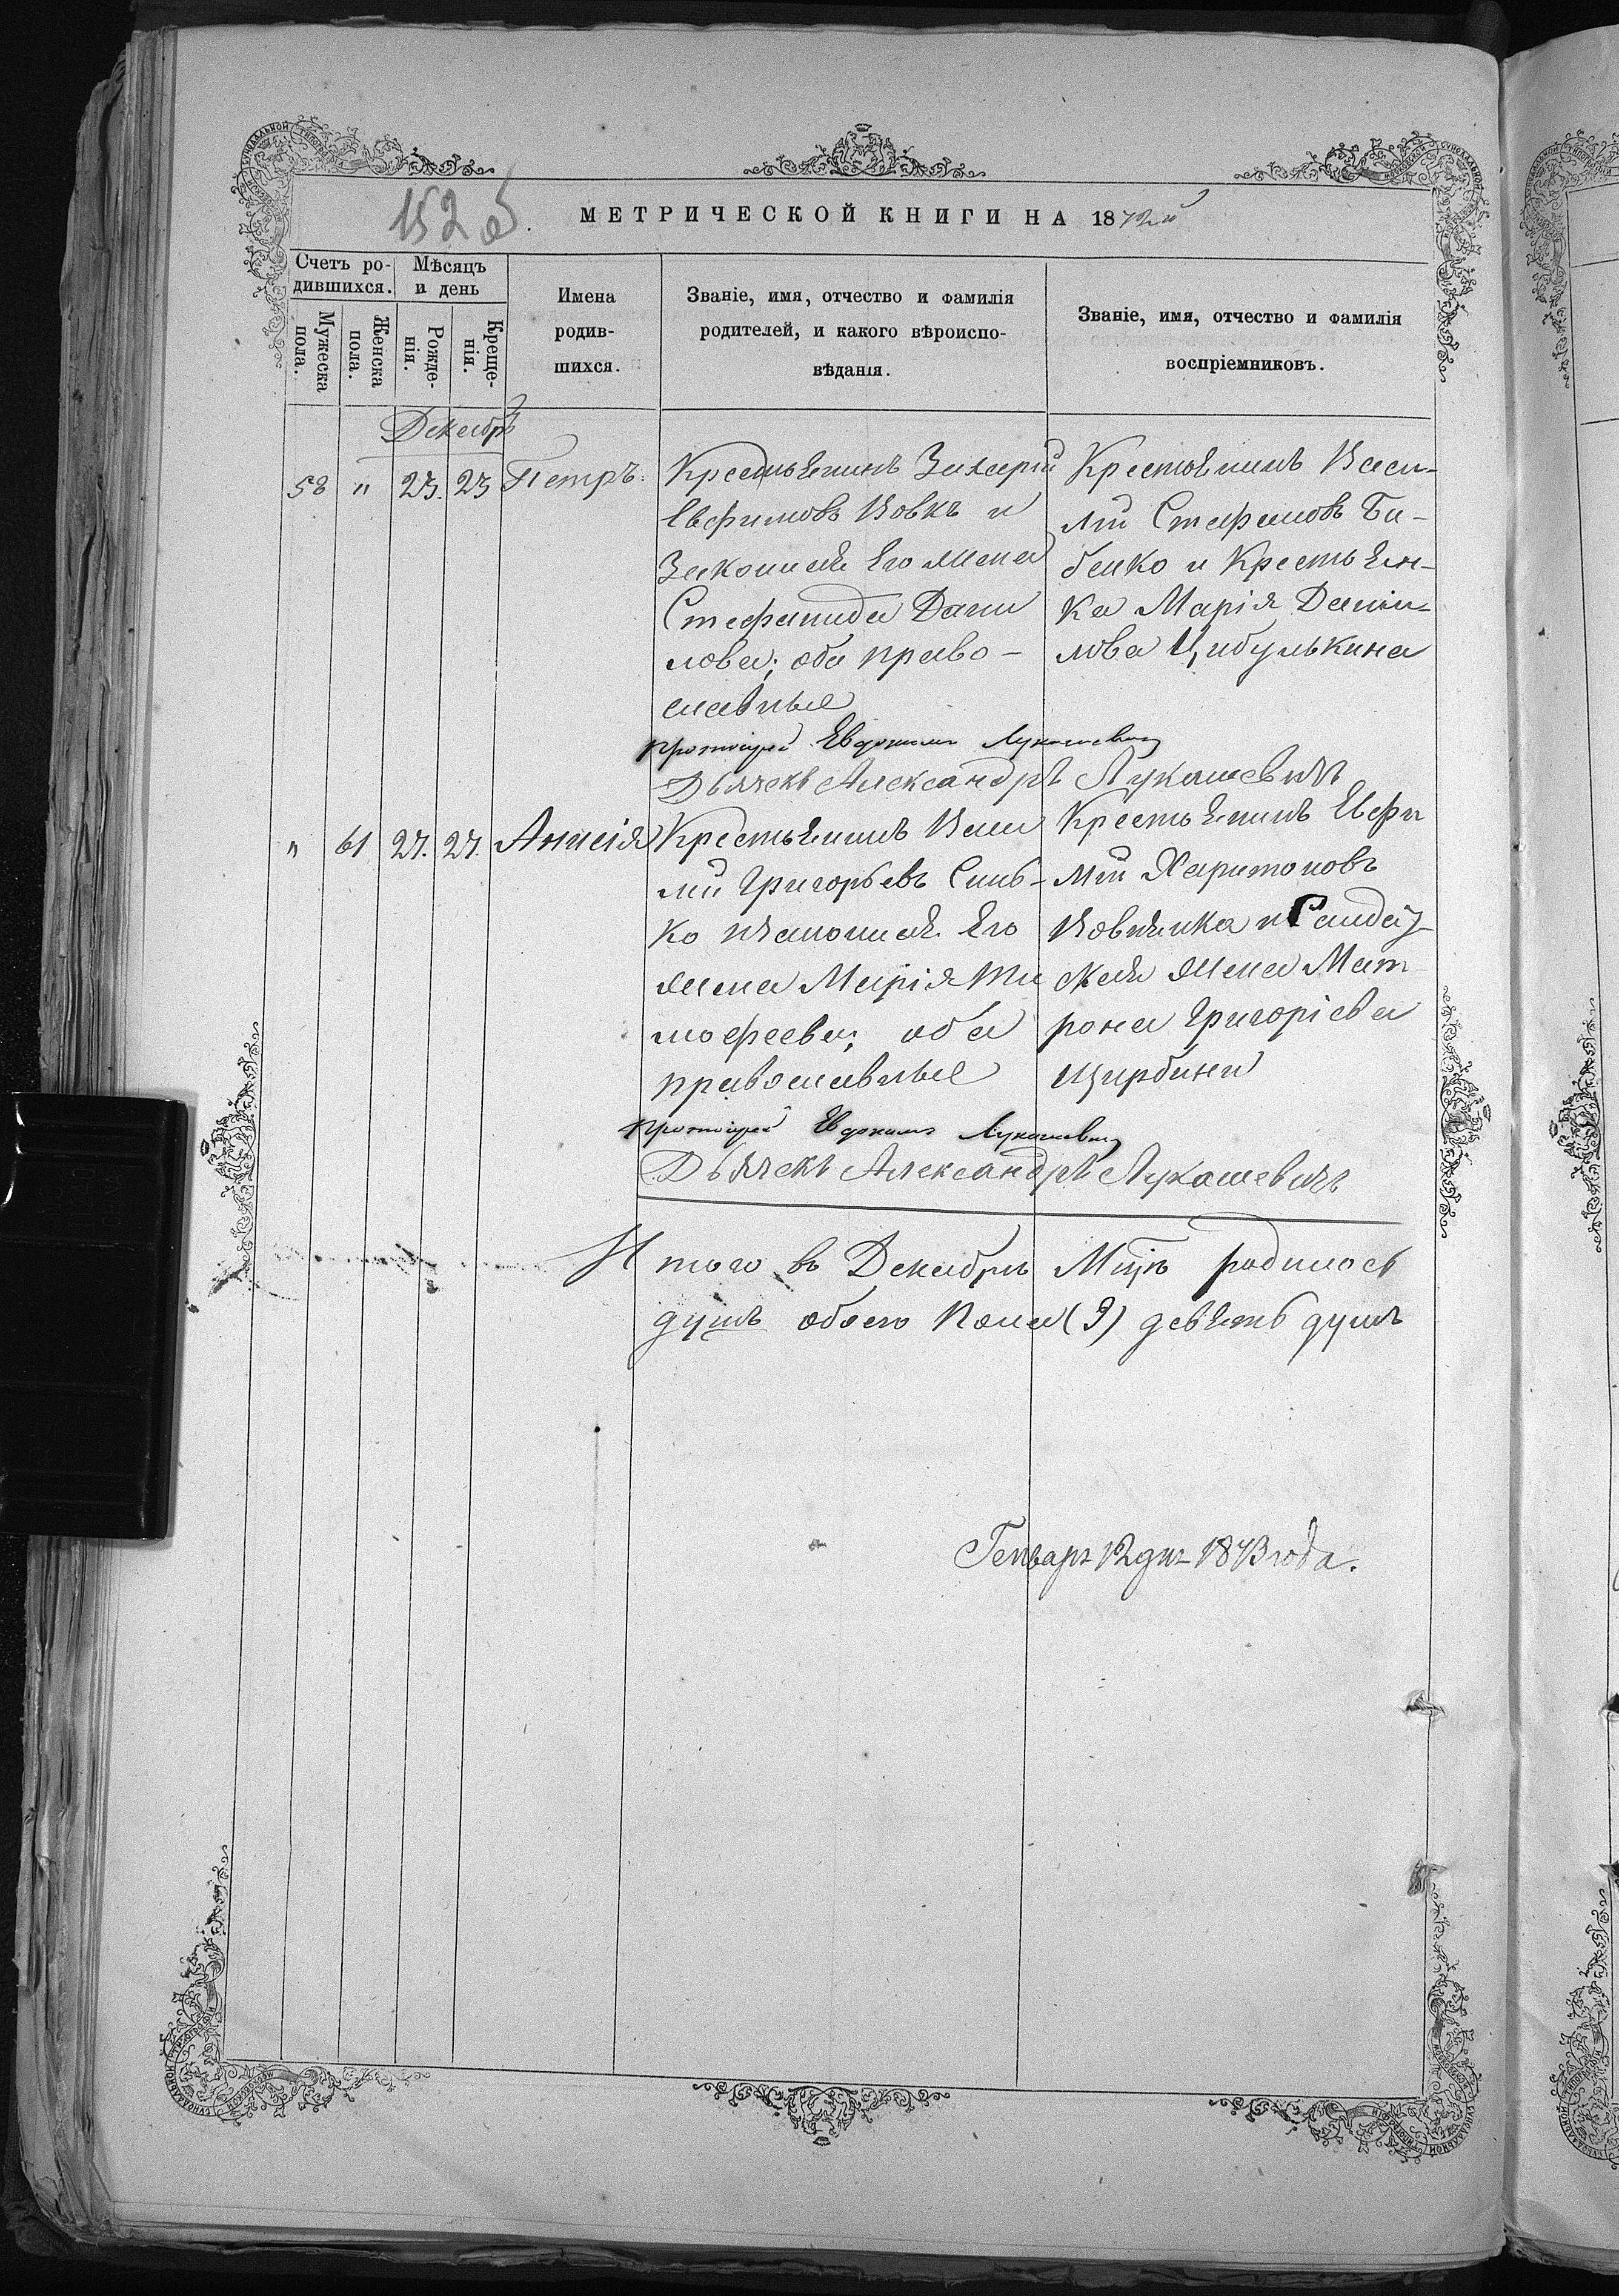 152 об.
МЕТРИЧЕСКОЙ КНИГИ НА 1872й
Счетъ ро-
дившихся.
Мѣсяцъ
и день
Мужеска
пола.
Женска
пола.
Рожде-
нія.
Креще-
нія.
Имена
родив-
шихся.
Званіе, имя, отчество и фамилія
родителей, и какого вѣроиспо-
вѣданія.
Званіе, имя, отчество и фамилія
воспріемниковъ.
Декабрь
58 " 23. 23 Петръ.
Крестьянинъ Захарій
Евфимовъ Вовкъ и
Законная Его жена
Стефанида Дани
лова; оба право-
славные
Крестьянинъ Васи-
лій Стефановъ Ба-
бенко и Крестьян-
ка Марія Даніи-
лова Цибулькина
Протоіерей Евдокимъ Лукашевичъ
Дьячекъ Александръ Лукашевичъ
" 61 27. 27. Анисія
Крестьянинъ Васи
лій Григорьевъ Синь-
ко изаконная Его
жена Марія Ти
мофеева; оба
православные
Крестьянинъ Евфи
мій Харитоновъ
Вовнянка и Солдат
ская жена Мат
рона Григоріева
Щирбина
Протоіерей Евдокимъ Лукашевичъ
Дьячекъ Александръ Лукашевичъ
Итого въ Декабрѣ Мцѣ родилось
душъ обоего Пола (9) девять душъ
Генваря 12 дня 1873 года.